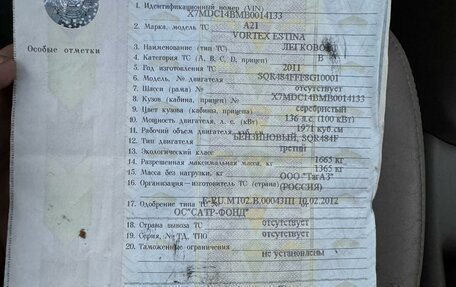 1. Идентификационный номер (VIN) X7MDC14BMB0014133
2. Марка, модель ТС А21
VORTEX ESTINA
Особые отметки
3. Наименование (тип ТС) ЛЕГКОВОЙ
4. Категория ТС (А, В, С, D, прицеп) В
5. Год изготовления ТС 2011
6. Модель, № двигателя SQR484FFF8G10001
7. Шасси (рама) № отсутствует
8. Кузов (кабина, прицеп) № X7MDC14BMB0014133
9. Цвет кузова (кабины, прицепа) серебристый
10. Мощность двигателя, л. с. (кВт) 136 л.с. (100 кВт)
11. Рабочий объем двигателя, куб. см 1971 куб.см
12. Тип двигателя БЕНЗИНОВЫЙ, SQR484F
13. Экологический класс третий
14. Разрешенная максимальная масса, кг 1665 кг
15. Масса без нагрузки, кг 1365 кг
16. Организация—изготовитель ТС (страна) ООО "ТагАЗ"
(РОССИЯ)
17. Одобрение типа ТС № E-RU.MT02.B.00043П1 10.02.2012
ОС"САТР-ФОНД"
18. Страна вывоза ТС отсутствует
19. Серия, № ТД, ТПО отсутствует
20. Таможенные ограничения
не установлены